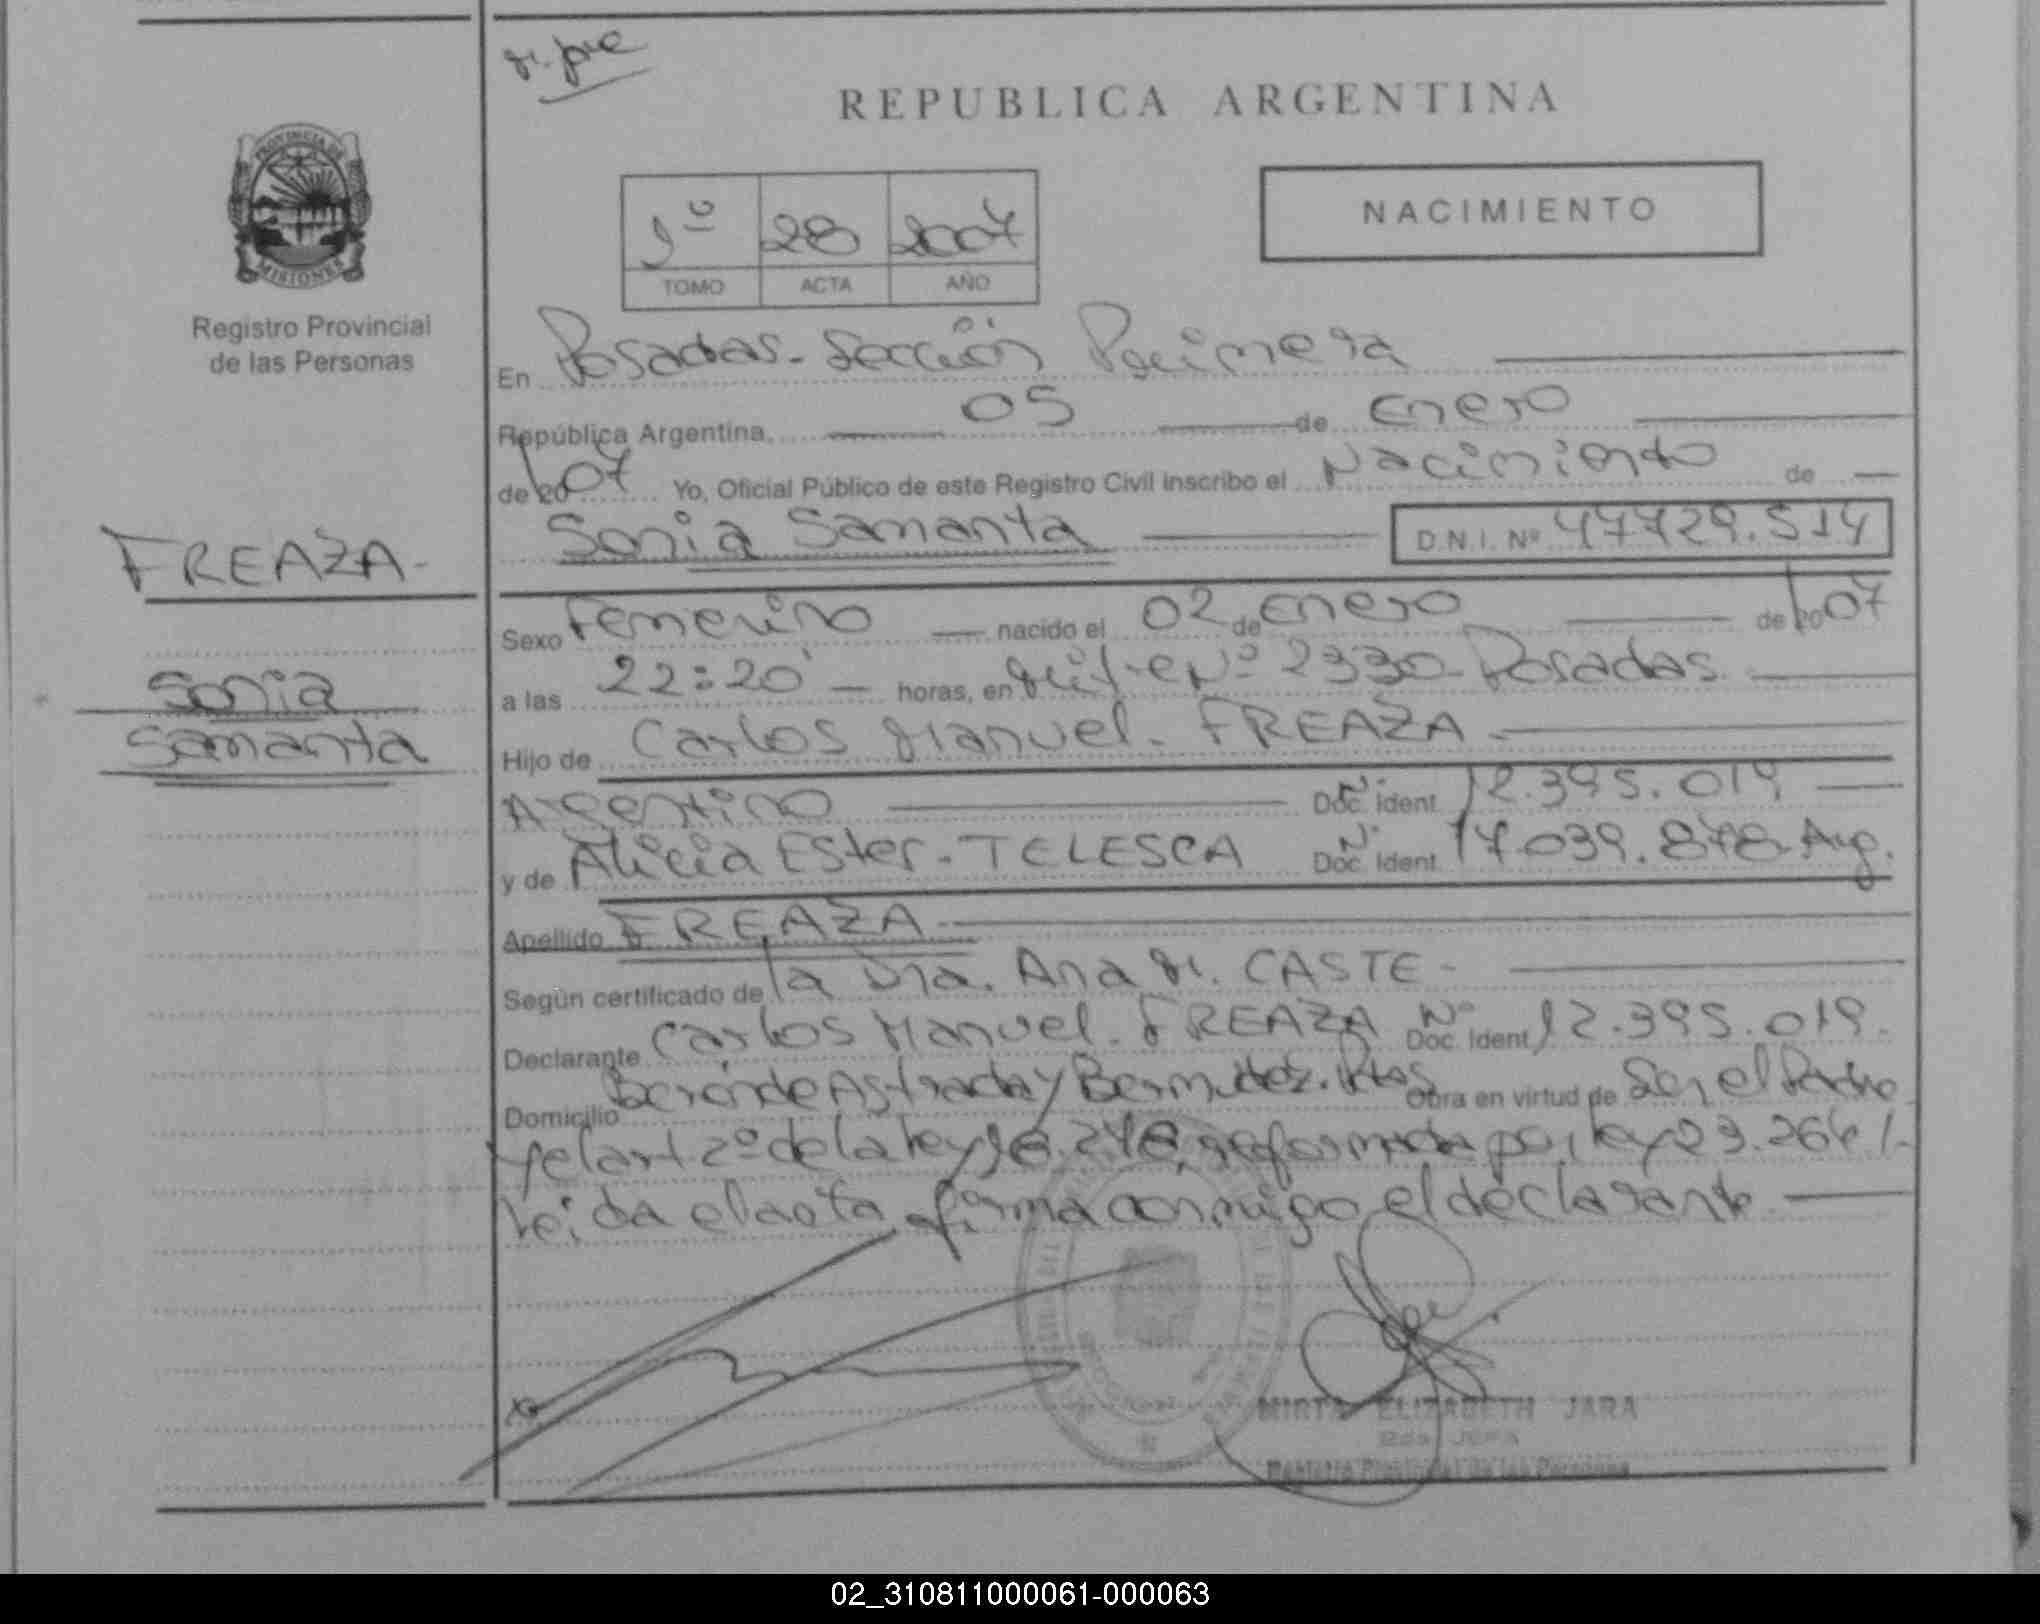 REPUBLICA ARGENTINA
NACIMIENTO
1º 28 2007
TOMO ACTA AÑO
PROVINCIA DE
MISIONES
Registro Provincial
de las Personas
En Posadas - Sección Primera
República Argentina, 05 de Enero
de 2007 Yo, Oficial Público de este Registro Civil inscribo el Nacimiento de
Sonia Samanta D.N.I. Nº 47729.514
FREAZA -
Sonia
Samanta
Sexo Femenino nacido el 02 de Enero de 2007
a las 22:20 horas, en Nº 2330 - Posadas
Hijo de Carlos Manuel - FREAZA -
Argentino Doc. Ident. Nº 12.395.019
y de Alicia Ester - TELESCA Doc. Ident. Nº 17.039.878 - Arg.
Apellido FREAZA -
Según certificado de la Dra. Ana M. CASTE -
Declarante Carlos Manuel - FREAZA Doc. Ident. Nº 12.395.019.
Domicilio Berón de Astrada y Bermudez. Obra en virtud de Ser el Padre
y el art 2º de la ley 18.248 reformada por ley 23.264
Leida el acta firma conmigo el declarante
MIRTA ELIZABETH JARA
Registro Provincial de las Personas
02_310811000061-000063